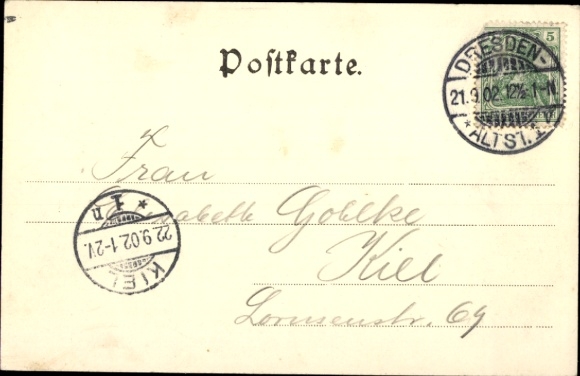 Postkarte.
5
DRESDEN-
21.9.02.12½-1-N.
* ALTST. IV
Frau
Elisabeth Gohlke
Kiel
Lornsenstr. 69
* I n
22.9.02.1-2V.
KIEL